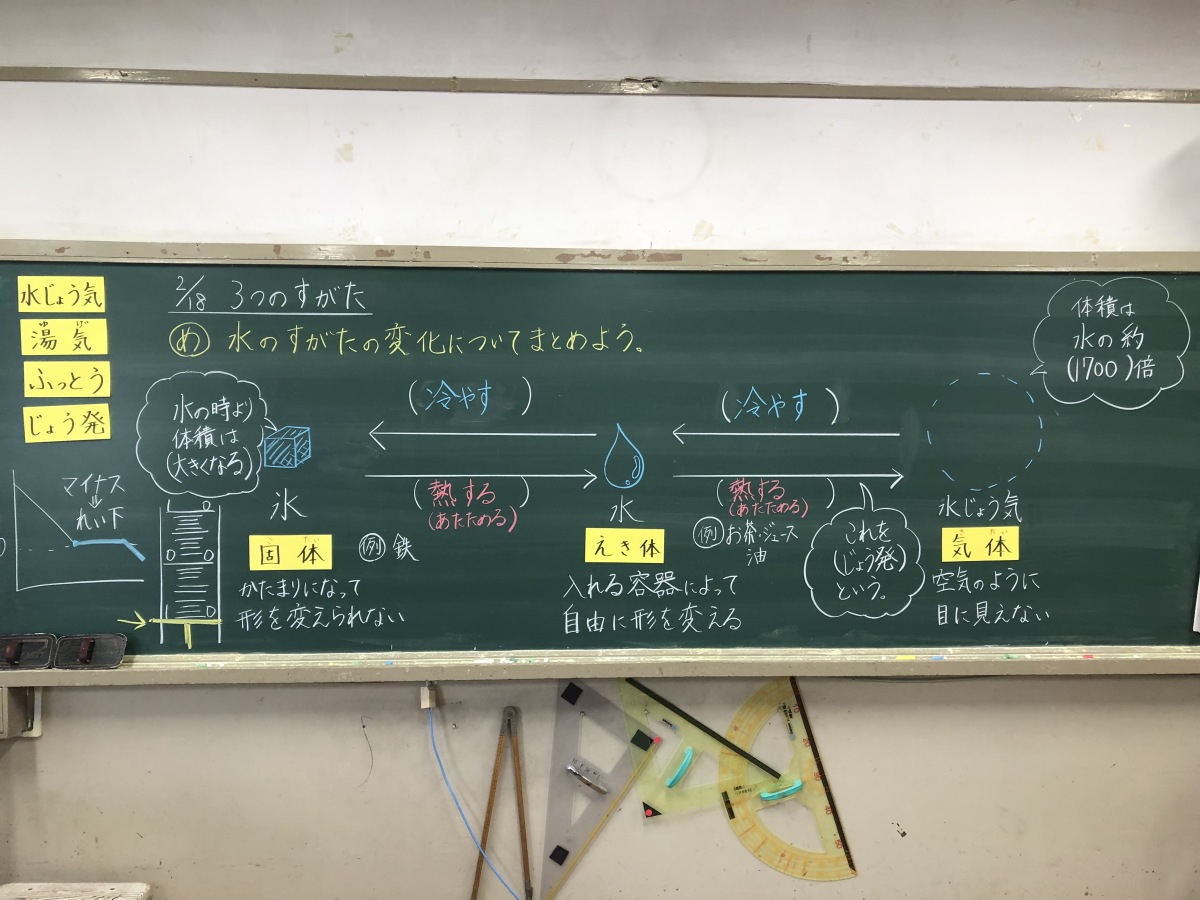 水じょう気
湯気
ゆげ
ふっとう
じょう発
2/18 3つのすがた
め 水のすがたの変化についてまとめよう。
水の時より
体積は
(大きくなる)
氷
固体
こたい
かたまりになって
形を変えられない
例 鉄
マイナス
れい下
0
0
0
(冷やす)
(熱する)
(あたためる)
水
えき体
入れる容器によって
自由に形を変える
(冷やす)
(熱する)
(あたためる)
例 お茶・ジュース
油
これを
(じょう発)
という。
体積は
水の約
(1700)倍
水じょう気
気体
きたい
空気のように
目に見えない